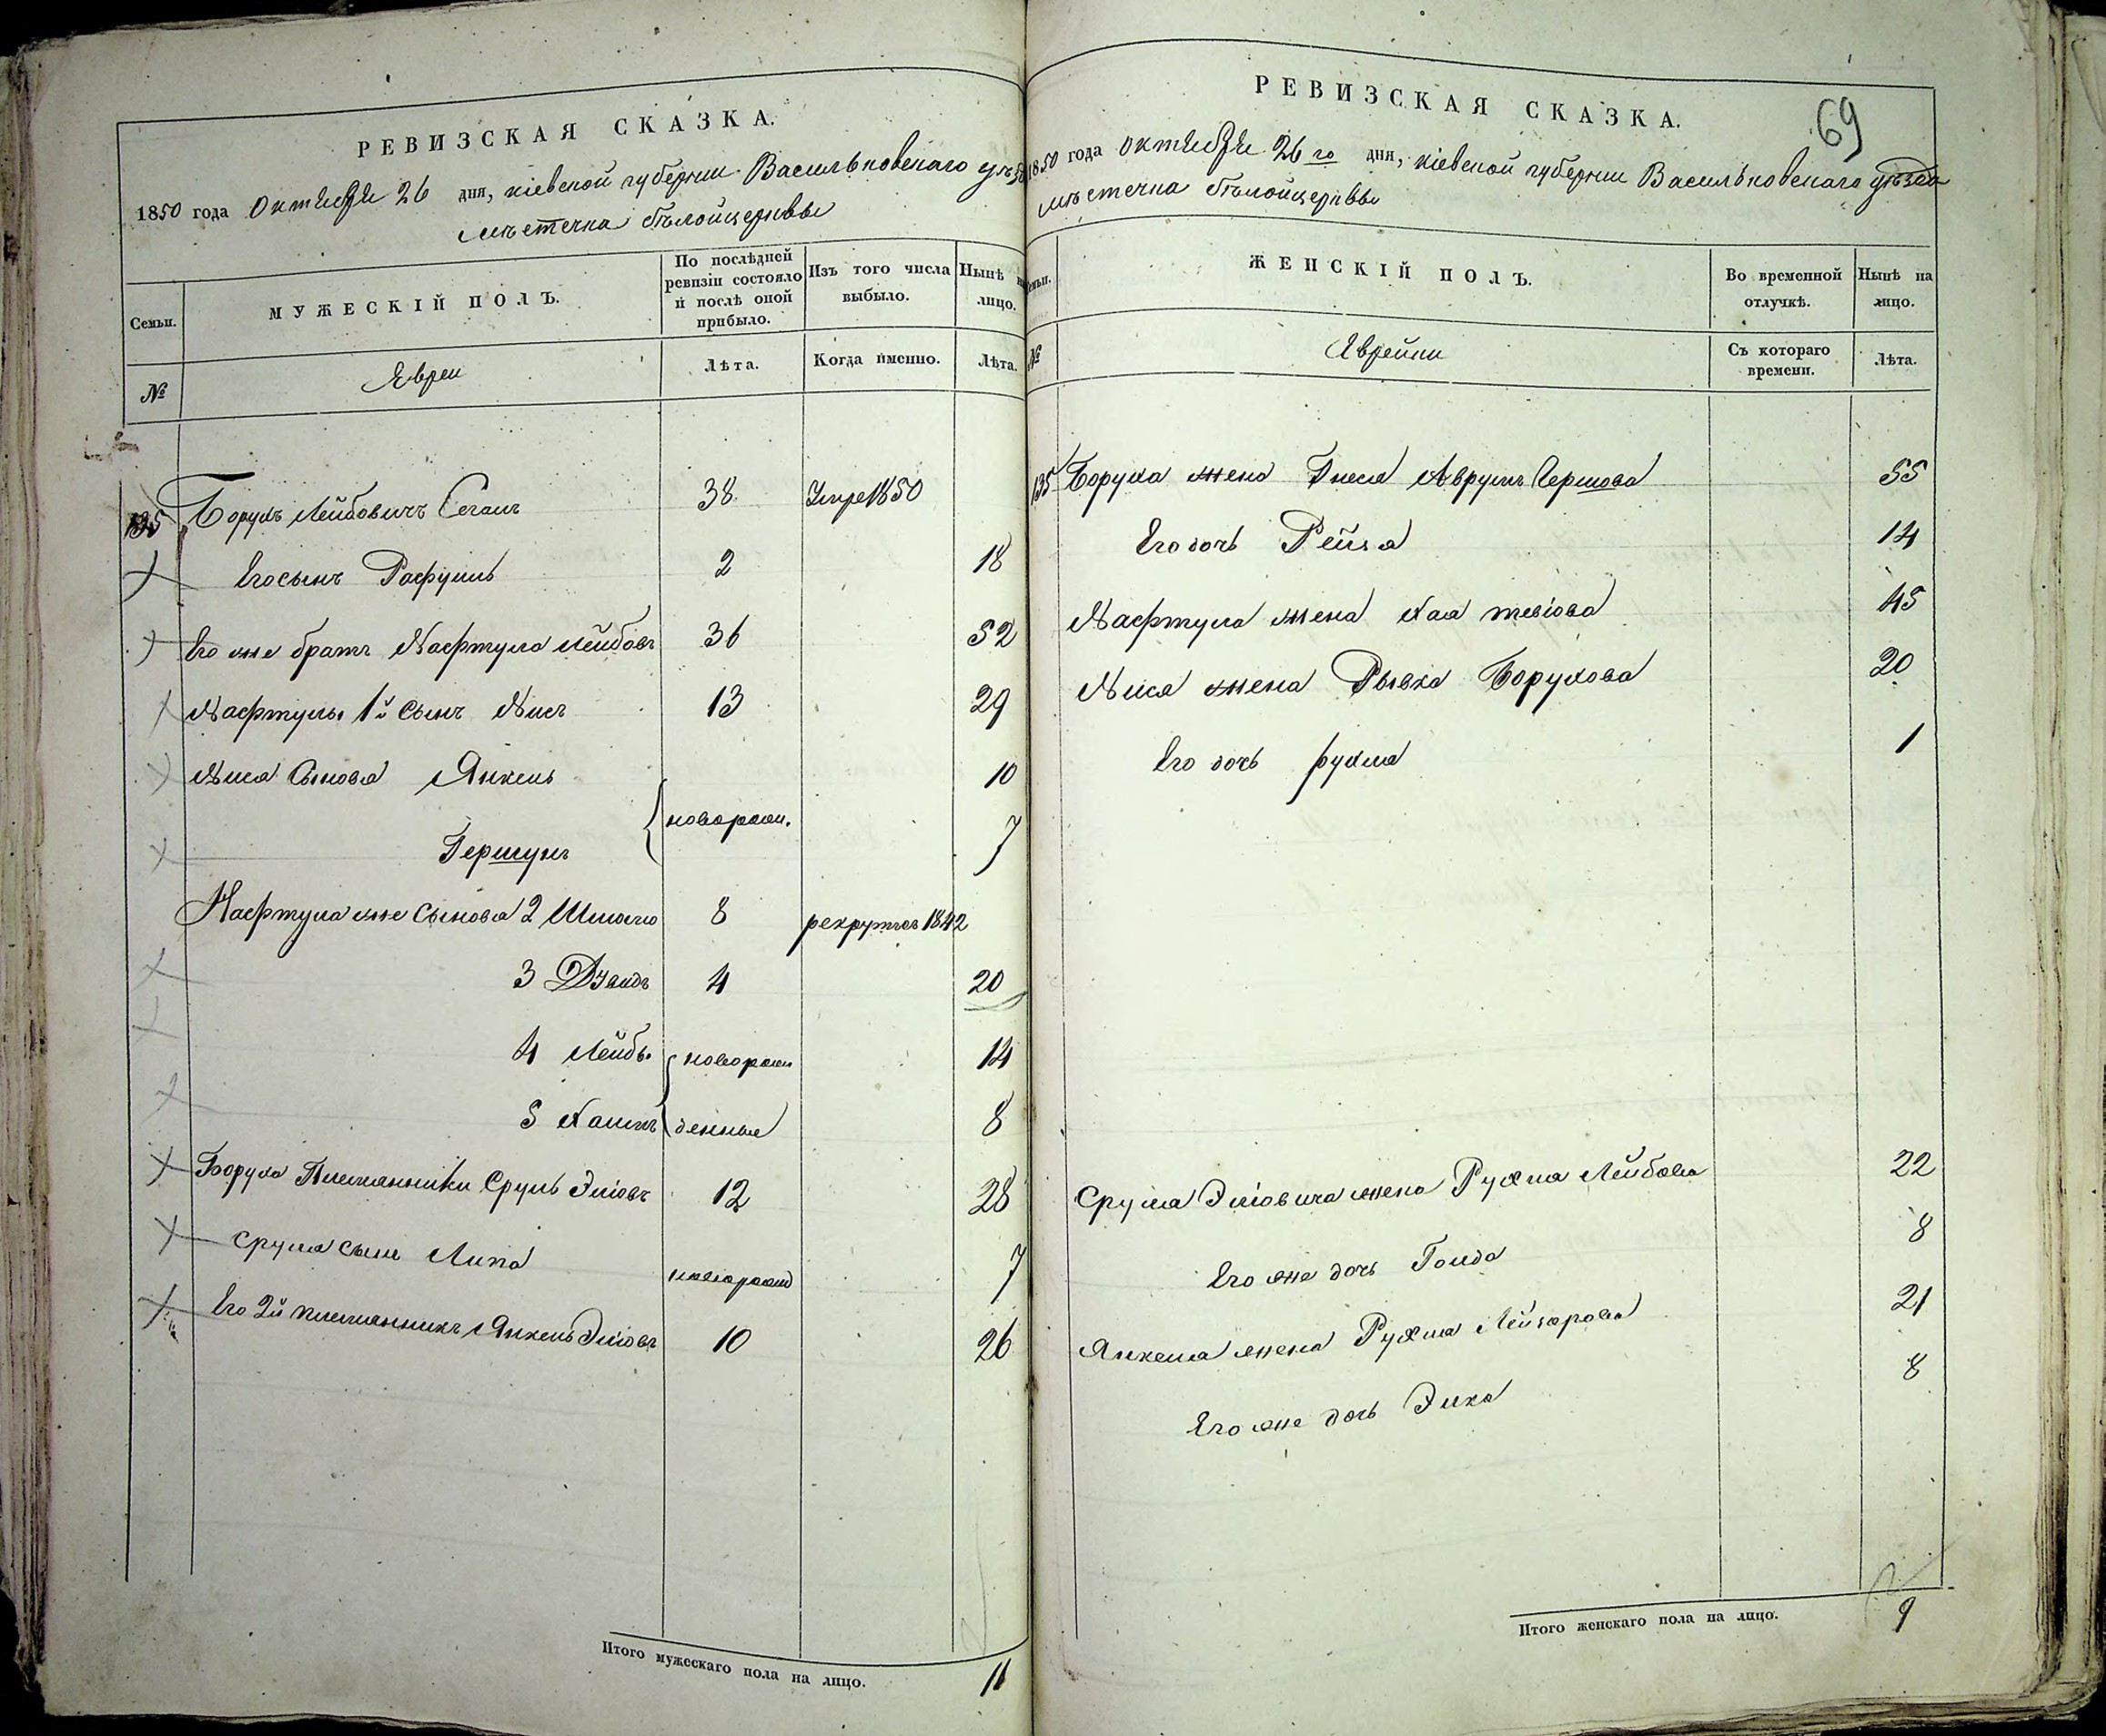 РЕВИЗСКАЯ СКАЗКА.
1850 года Октября 26 дня, Кіевской губерніи Васильковскаго уѣзд
мѣстечка Бѣлойцеркви
Семьи.
МУЖЕСКІЙ ПОЛЪ.
По послѣдней ревизіи состояло и послѣ оной прибыло.
Изъ того числа выбыло.
Нынѣ на лицо.
№
Евреи
Лѣта.
Когда именно.
Лѣта.
135 Борухъ Лейбовичъ Сеганъ 38 Умре 1850
Его сынъ Рафуилъ 2 18
Его же братъ Нафтула Лейбовъ 36 52
Нафтулы 1й сынъ Нисъ 13 29
Нися сыновья Янкель 10
новорожд.
Гершунъ 7
Нафтула же сыновья 2 Шмолю 8 рекрутъ 1842
3 Дувидъ 4 20
4 Лейбъ новорож 14
5 Хаимъ денные 8
Боруха племянники Сруль Эліовъ 12 28
Сруля сынъ Липа новорожд 7
Его 2й племянникъ Янкель Эліовъ 10 26
Итого мужескаго пола на лицо. 11
69
РЕВИЗСКАЯ СКАЗКА.
1850 года Октября 26 го дня, Кіевской губерніи Васильковскаго уѣзда
мѣстечка Бѣлойцеркви
Семьи.
ЖЕНСКІЙ ПОЛЪ.
Во временной отлучкѣ.
Нынѣ на лицо.
№
Еврейки
Съ котораго времени.
Лѣта.
135 Боруха жена Гнеся Аврумъ Гершова 55
Его дочь Рейзя 14
Нафтула жена Хая Тевіова 45
Нися жена Рывка Борухова 20
Его дочь Рухля 1
Сруля Эліовича жена Рухля Лейбова 22
Его же дочь Голда 8
Янкеля жена Рухля Лейзорова 21
Его же дочь Элка 8
Итого женскаго пола на лицо. 9